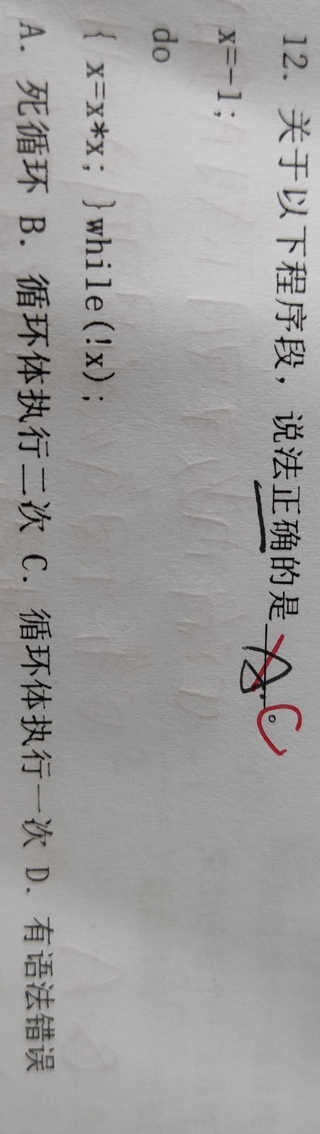 12. 关于以下程序段，说法正确的是 A C。
x=-1;
do
{ x=x*x; }while(!x);
A. 死循环 B. 循环体执行二次 C. 循环体执行一次 D. 有语法错误